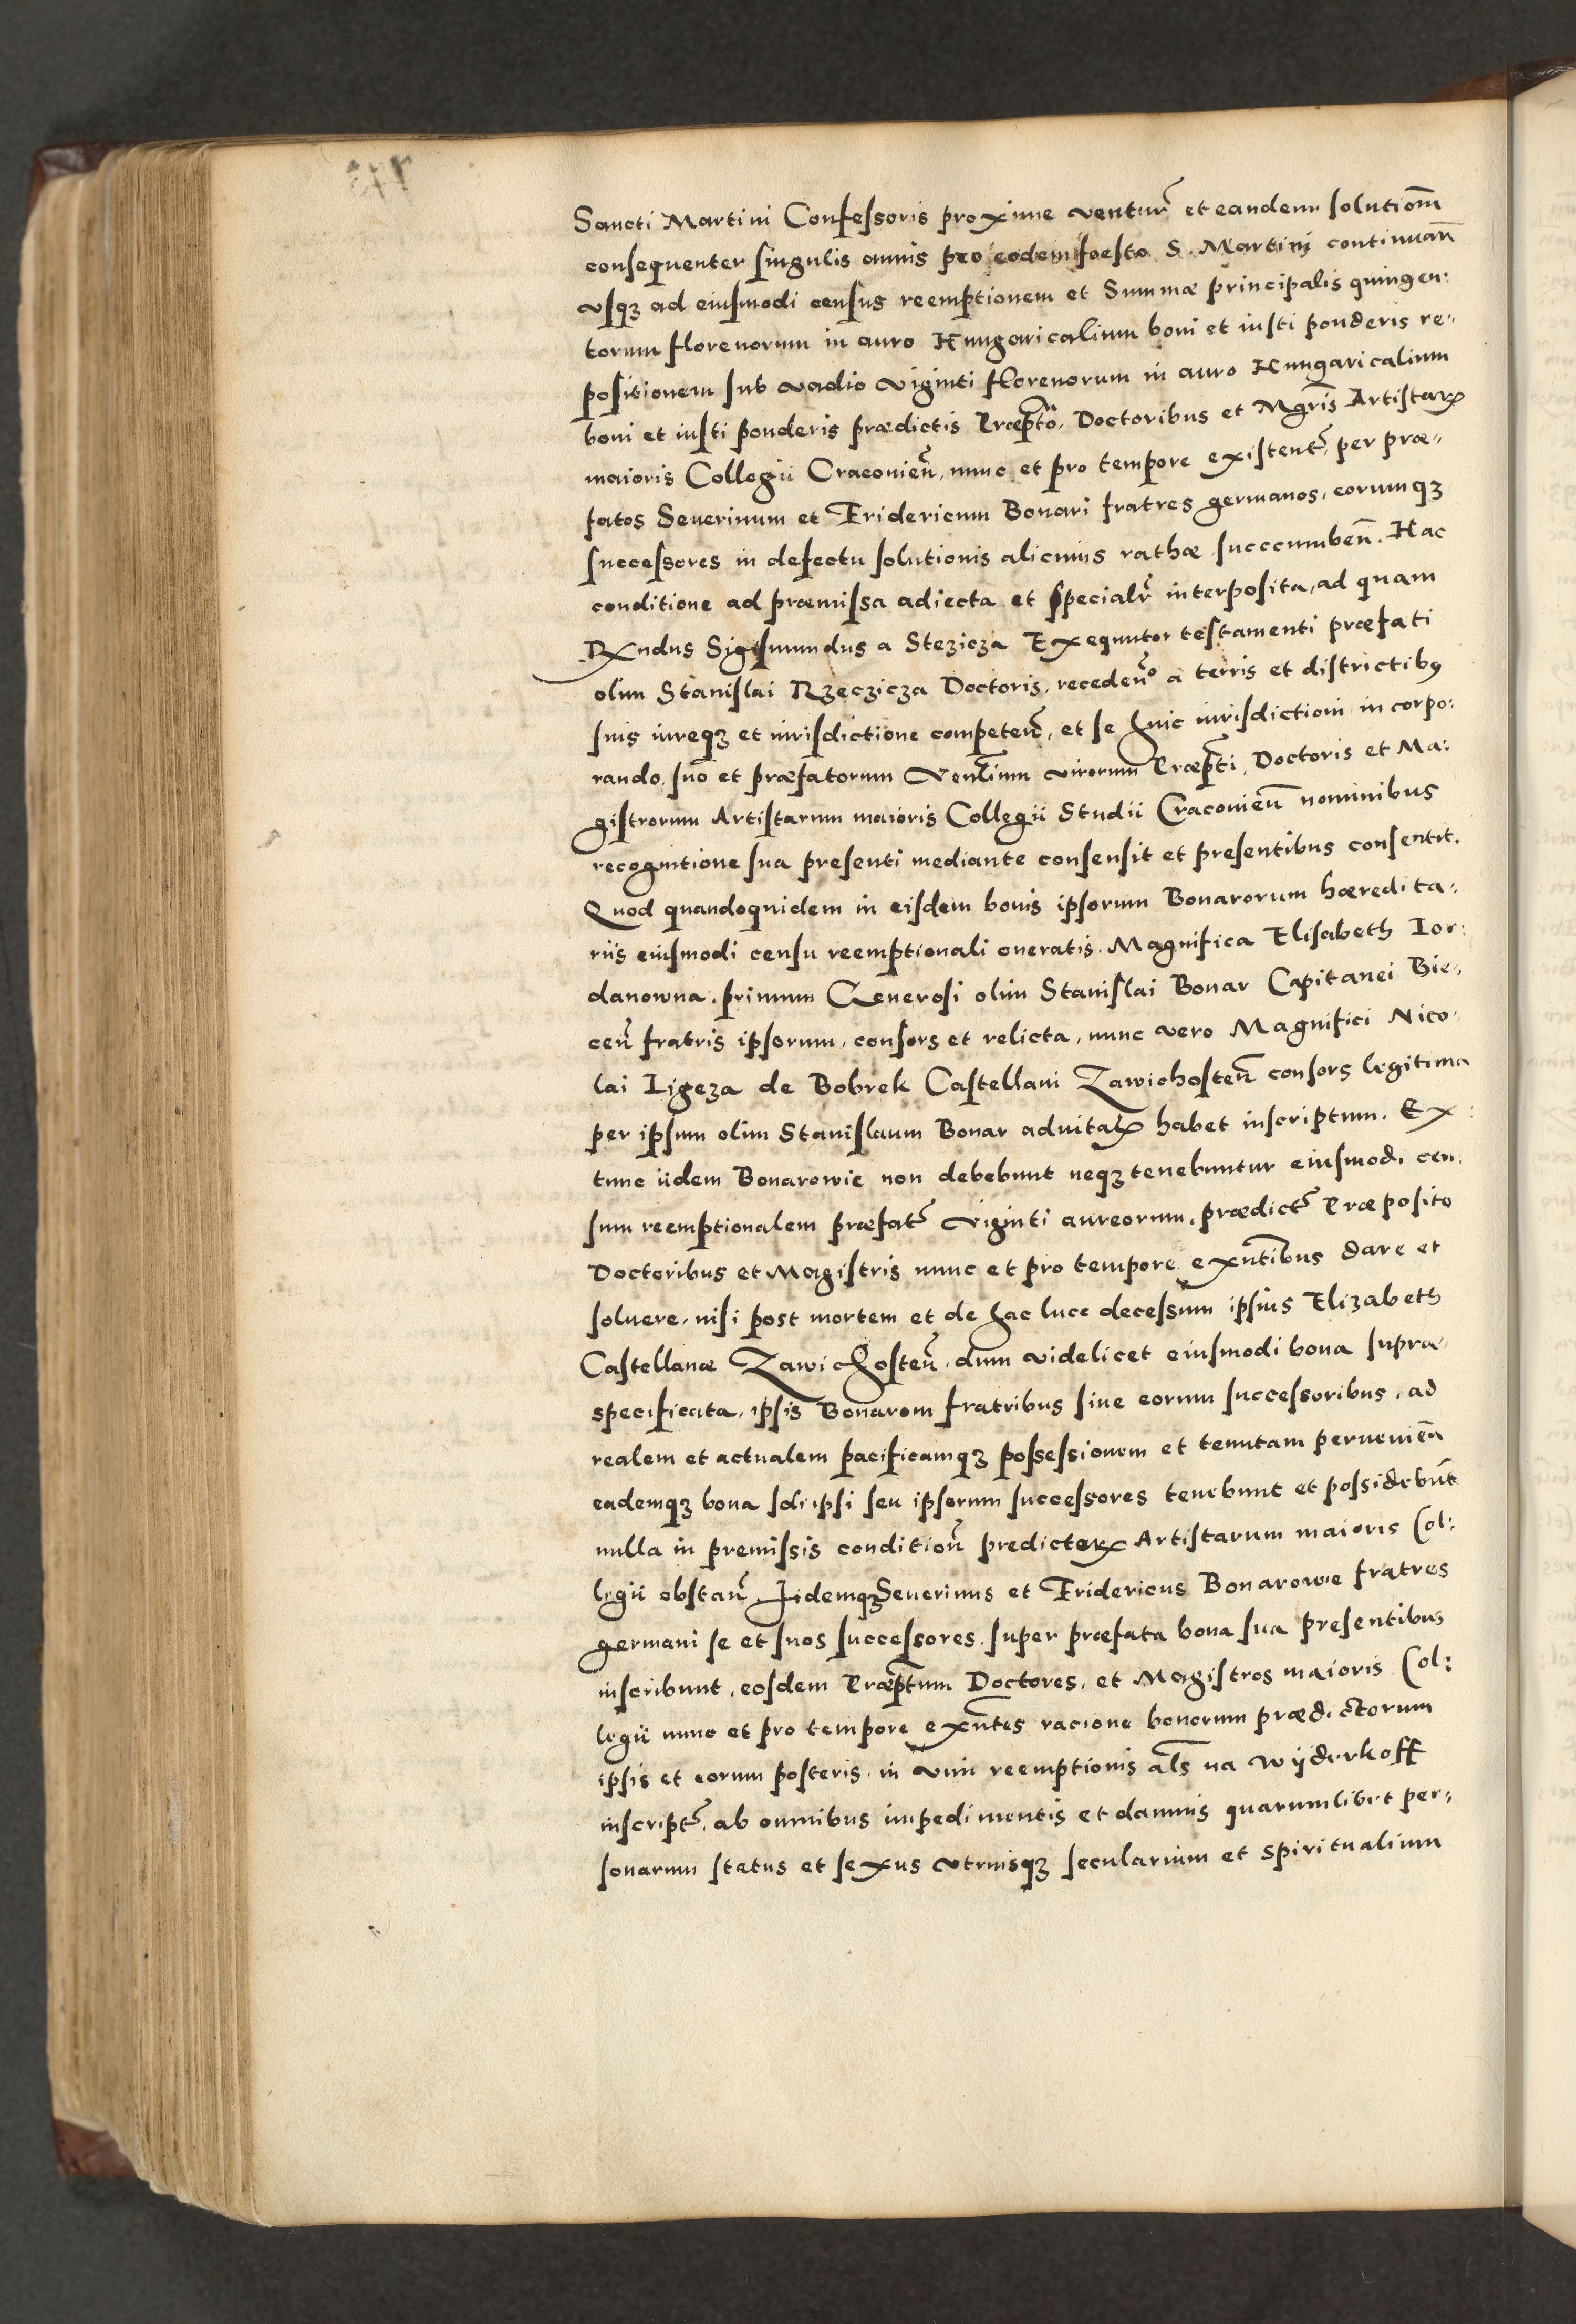 Sancti Martini Confessoris proxime ventur̃ et eandem solutiom̃
consequenter singulis annis pro eodem foesto S. Martini continuan̄
vsqꝫ ad eiusmodi census reemptionem et Summæ principalis quingen:
torum florenorum in auro Hungaricalium boni et iusti ponderis re-
positionem sub vadio viginti florenorum in auro Hungaricalium
boni et iusti ponderis prædictis Præpto, Doctoribus et Mgris Artistaꝝ
maioris Collegii Cracovien̄, nunc et pro tempore existent̃, per præ-
fatos Seuerinum et Fridericum Bonari fratres germanos, eorumqꝫ
successores in defectu solutionis alicuius rathæ succcumben̄. Hac
conditione ad præmissa adiecta et specialr̃ interposita, ad quam
Rx̃ndus Sigismundus a Stezicza Exequutor testamenti præfati
olim Stanislai Rzeczicza Doctoris, receden̄º a terris et districtibꝰ
suis iureqꝫ et iurisdictione competen̄, et se huic iurisdictioni in corpo:
rando, suo et præfatorum Ven̄lium virorum Præpti, Doctoris et Ma:
gistrorum Artistarum maioris Collegii Studii Cracouien̄ nominibus
recognitione sua presenti mediante consensit et presentibus consentit.
Quod quandoquidem in eisdem bonis ipsorum Bonarorum hæredita-
riis eiusmodi censu reemptionali oneratis. Magnifica Elisabeth Ior:
danowna, primum Generosi olim Stanislai Bonar Capitanei Bie-
cen̄ fratris ipsorum, consors et relicta, nunc vero Magnifici Nico-
lai Ligeza de Bobrek Castellani Zawichosten̄ consors legitima
per ipsum olim Stanislaum Bonar aduitaꝝ habet inscriptum. Ex
tunc iidem Bonarowie non debebunt neqꝫ tenebuntur eiusmodi cen:
sum reemptionalem præfat̃ viginti aureorum, prædict̃ Præposito
Doctoribus et Magistris nunc et pro tempore exñtibus dare et
soluere, nisi post mortem et de hac luce decessum ipsius Elizabeth
Castellanæ Zawichosten̄, dum videlicet eiusmodi bona supra-
specificata, ipsis Bonarom fratribus siue eorum successoribus, ad
realem et actualem pacificamqꝫ possessionem et tenutam peruenien̄
eademqꝫ bona soli ipsi seu ipsorum successores tenebunt et possidebūt
nulla in premissis condition̄ predictorꝝ Artistarum maioris Col:
legii obstan̄ Iidemqꝫ Seuerinus et Fridericus Bonarowie fratres
germani se et suos successores, super præfata bona sua presentibus
inscribunt, eosdem Præptum Doctores, et Magistros maioris Col:
legii nunc et pro tempore exñtes racione bonorum prædictorum
ipsis et eorum posteris, in vim reemptionis als̃ na wÿderkoff
inscript̃, ab omnibus impedimentis et damnis quarumlibet per-
sonarum status et sexus vtriusqꝫ secularium et spiritualium